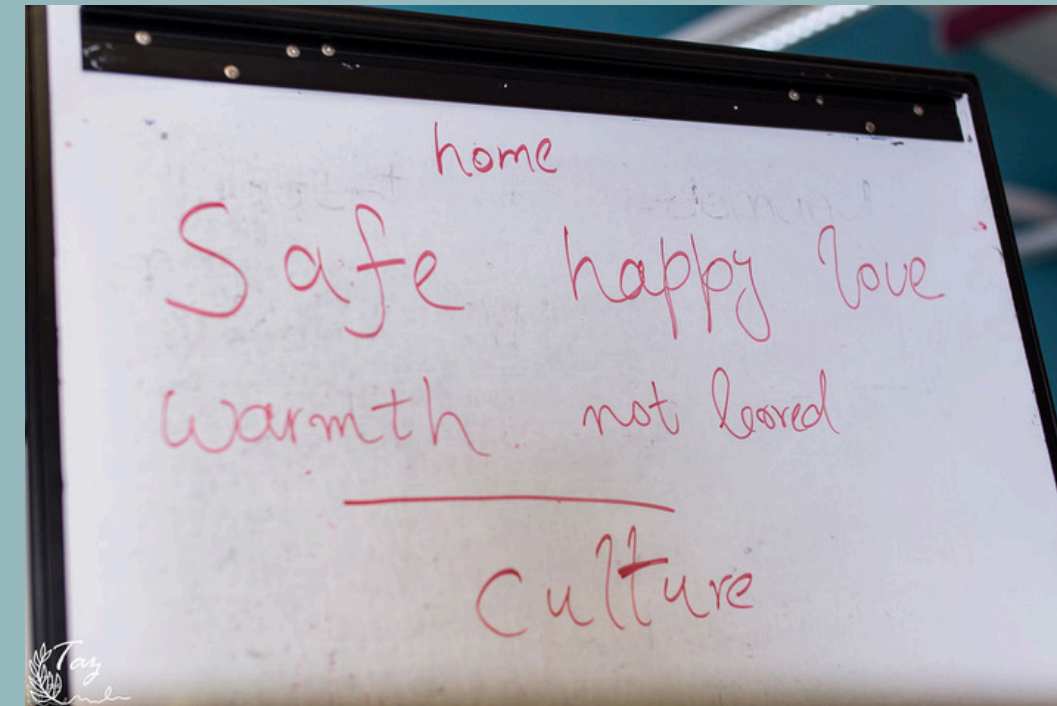 home
Safe happy love
warmth not bored
culture
Tay